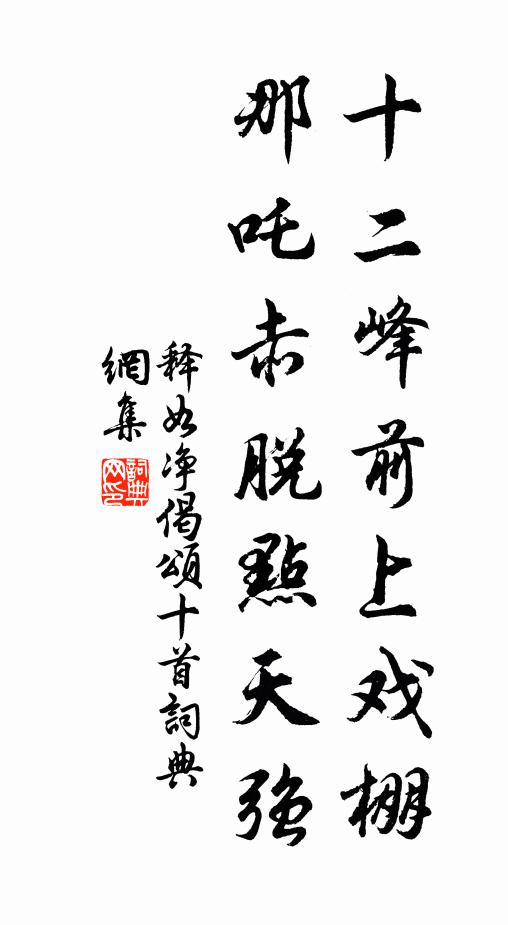 十二峰前上戏棚
那吒赤脱點天强
释如净偈頌十首詞典
網集
詞典網印